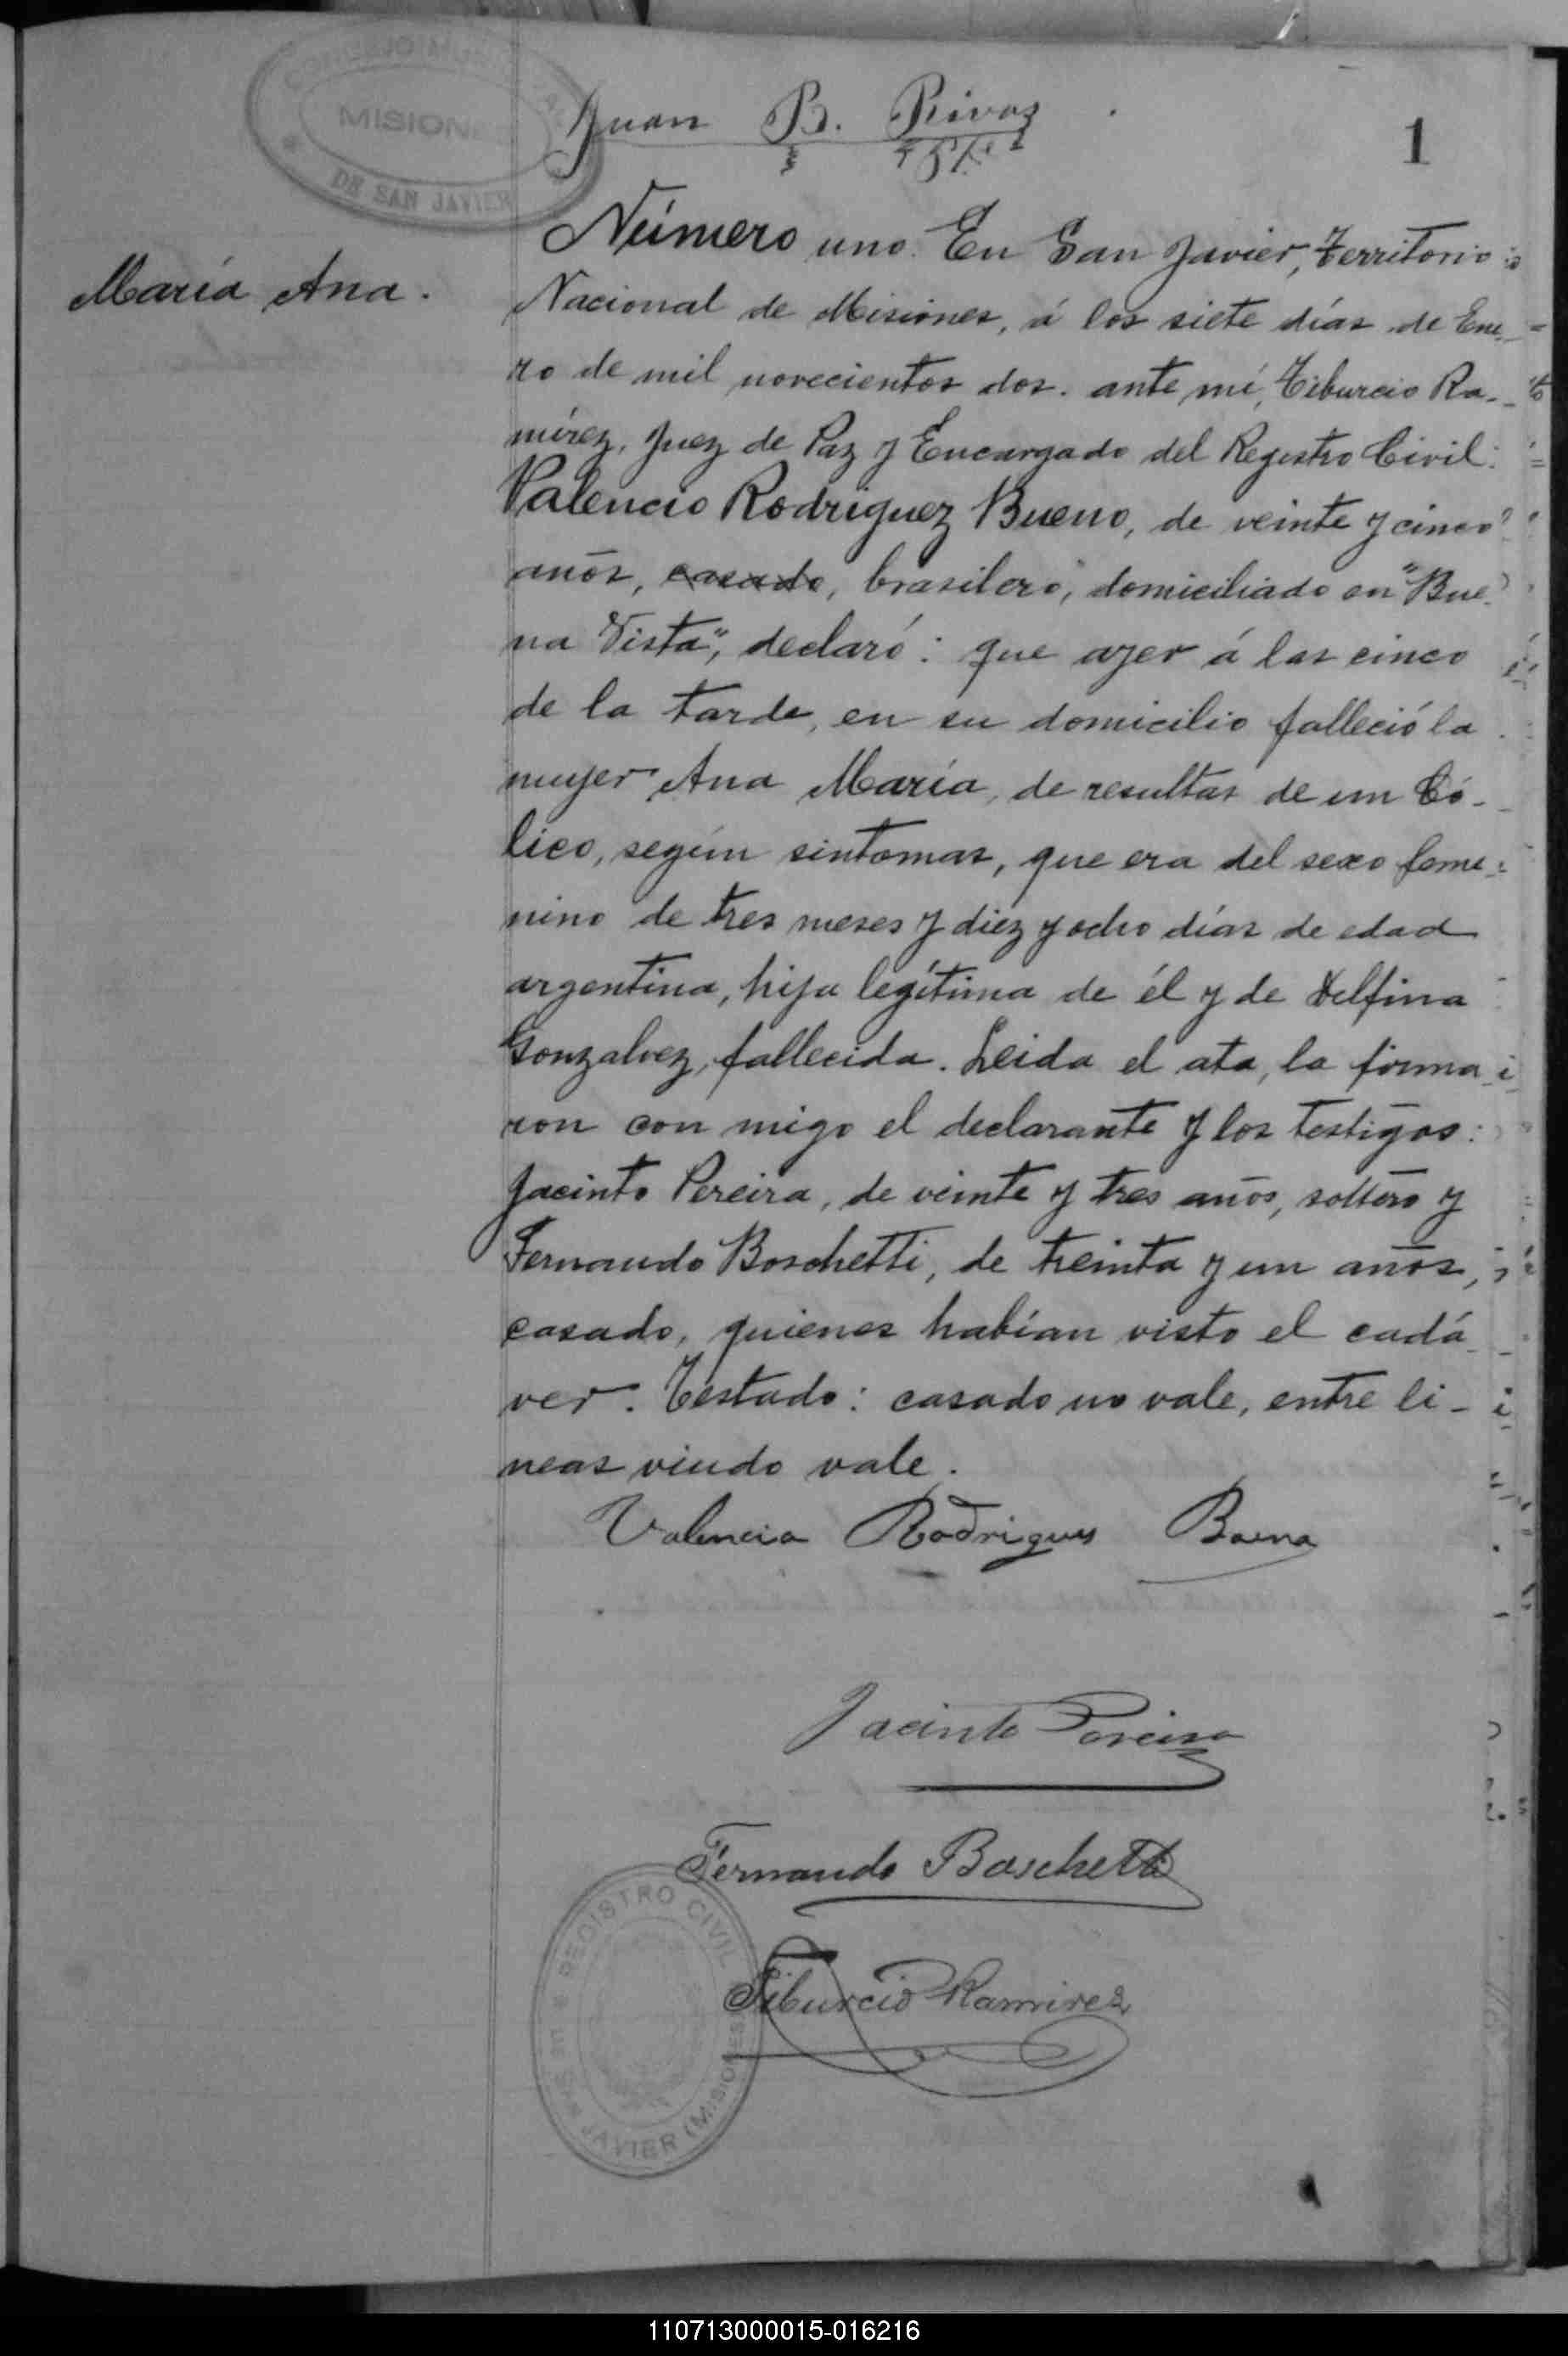 CONSEJO MUNICIPAL
MISIONES
DE SAN JAVIER
Juan B. Rivas
1
María Ana.
Número uno. En San Javier, Territorio
Nacional de Misiones, á los siete días de Ene-
ro de mil novecientos dos. ante mí, Tiburcio Ra-
mírez, Juez de Paz y Encargado del Registro Civil:
Valencio Rodriguez Bueno, de veinte y cinco
años, casado, brasilero, domiciliado en "Bue-
na Vista", declaró: que ayer á las cinco
de la tarde, en su domicilio falleció la
mujer Ana María, de resultas de un Có-
lico, según sintomas, que era del sexo feme-
nino de tres meses y diez y ocho días de edad
argentina, hija legítima de él y de Delfina
Gonzalvez, fallecida. Leida el ata, la firma
ron con migo el declarante y los testigos:
Jacinto Pereira, de veinte y tres años, soltero y
Fernando Boschetti, de treinta y un años,
casado, quienes habían visto el cadá
ver. Testado: casado no vale, entre li-
neas viudo vale.
Valencio Rodrigues Bueno
Jacinto Pereira
Fernando Boschetti
Tiburcio Ramirez
REGISTRO CIVIL
DE SAN JAVIER (MISIONES)
110713000015-016216